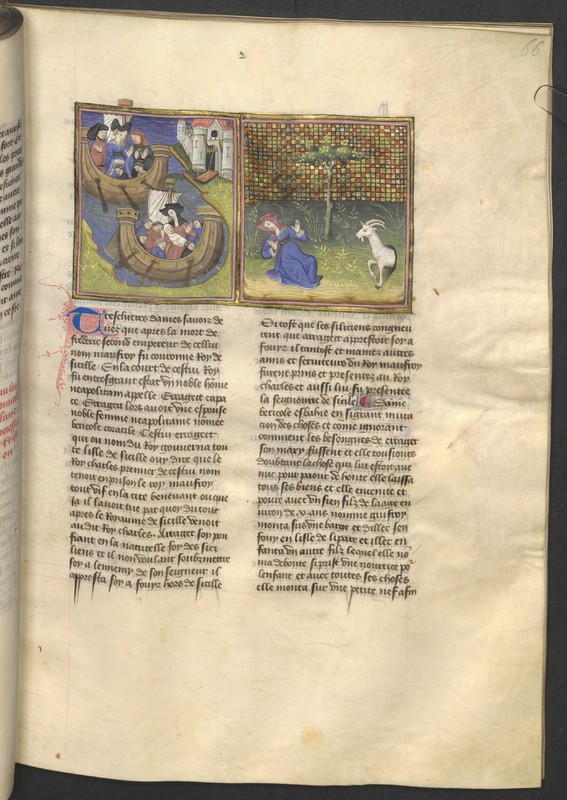 66
Treschieres dames savoir de
vez que apres la mort de
frederic second emperent de cellui
nom mauffroy fu couronne Roy de
sicille En la court de cestui Roy
fu entresgrant estat un noble homme
neapolitam appelle Erraget capa
ce Erraget lors avoit une espouse
noble femme neapolitaine nomee
bericole coracile Cestui erraget
qui ou nom du Roy gouverna tou
te lisle de sicille ouy dire que le
Roy charles premier de cestui nom
tenoit en prison le roy mauffroy
tout vif en la cite benevant ou que
il lavoit tue par quoy du tout
apres le Royaume de sicille venoit
audit Roy charles Arraget soy pou
fiant en la naturelle foy des sici
liens et il non voulant soubzmettre
soy a lennemy de son seigneur il
appresta soy a fouyr hors de sicille
Si tost que les siliciens congneu
rent que arraget apprestoit soy a
fouyr il tantost et maintz autres
amis et serviteurs du Roy mauffroy
furent prins et presentez au Roy
charles et aussi lui fu presentee
la seigneurie de sicile Dame
bericole esbahie en si grant muta
cion des choses et come ignorant
comment les besongnes de erraget
son mary fussent et elle tousiours
doubtant la chose qui lui estoit ave
nue pour paour de honte elle laissa
tous ses biens et elle encemte et
povre avec un sien filz de laage en
viron de ans nomme guiffroy
monta sus une barge et dillec sen
fouy en lisle de lipare et illec en
fanta un autre filz lequel elle no
ma deboute si prist une nourrice po
lenfant et avec toutes ses choses
elle monta sur une petite nef afin